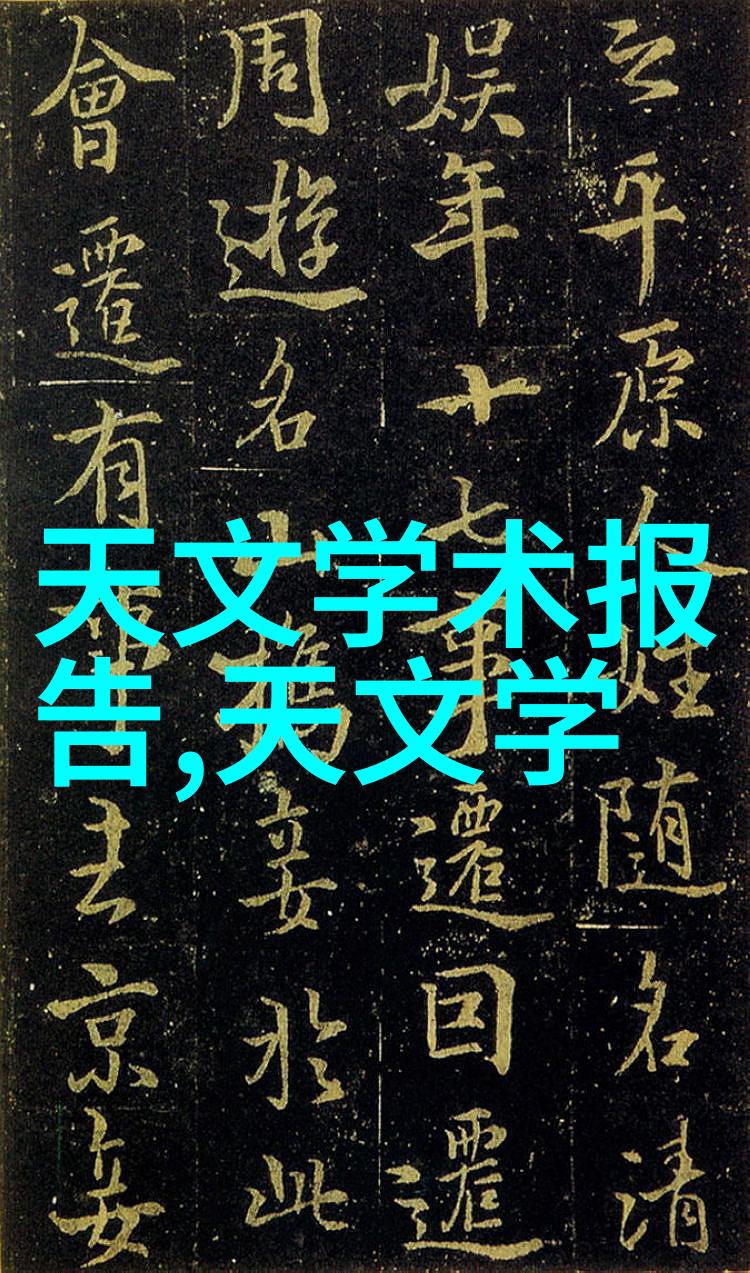 之平原人姓随名清
娱年十七事遷回遷
周遊名山携妾於此
會遷有京妾
天文学术报
告,天文学